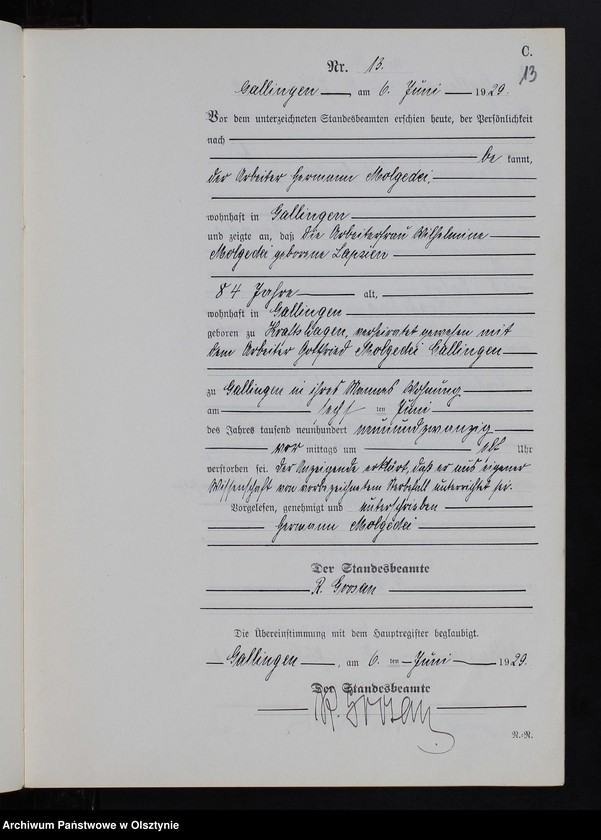 C.
13
Nr. 13.
Gallingen, am 6. Juni 1929.
Vor dem unterzeichneten Standesbeamten erschien heute, der Persönlichkeit
nach
be kannt,
der Arbeiter Hermann Molgedei,
wohnhaft in Gallingen
und zeigte an, daß die Arbeiterfrau Wilhelmine
Molgedei geborene Lapsien
84 Jahre alt,
wohnhaft in Gallingen
geboren zu verheiratet gewesen mit
dem Arbeiter Gottfried Molgedei Gallingen
zu Gallingen in ihres Mannes Wohnung
am ten Juni
des Jahres tausend neunhundert neunundzwanzig
vor mittags um Uhr
verstorben sei. Der Anzeigende erklärt, daß er aus eigener
Wissenschaft von vorbezeichnetem Sterbefall unterrichtet sei.
Vorgelesen, genehmigt und unterschrieben
Hermann Molgedei
Der Standesbeamte
R. Goosan
Die Übereinstimmung mit dem Hauptregister beglaubigt.
Gallingen, am 6. ten Juni 1929.
Der Standesbeamte
R. Goosan
R.-R.
Archiwum Państwowe w Olsztynie